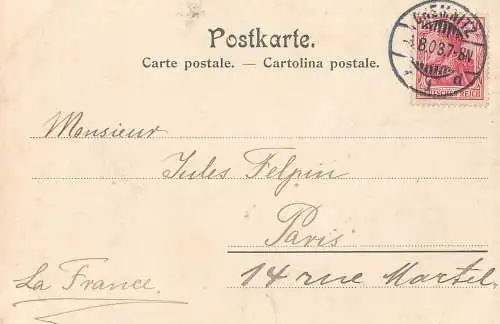 Postkarte.
Carte postale. — Cartolina postale.
CHEMNITZ
8.03.7-8N.
d
DEUTSCHES REICH
Monsieur
Jules Felpin
Paris
14 rue Martel.
La France.